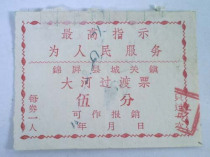 最高指示
为人民服务
锦屏县城关镇
大河过渡票
伍分
每券一人
可作报销
年 月 日